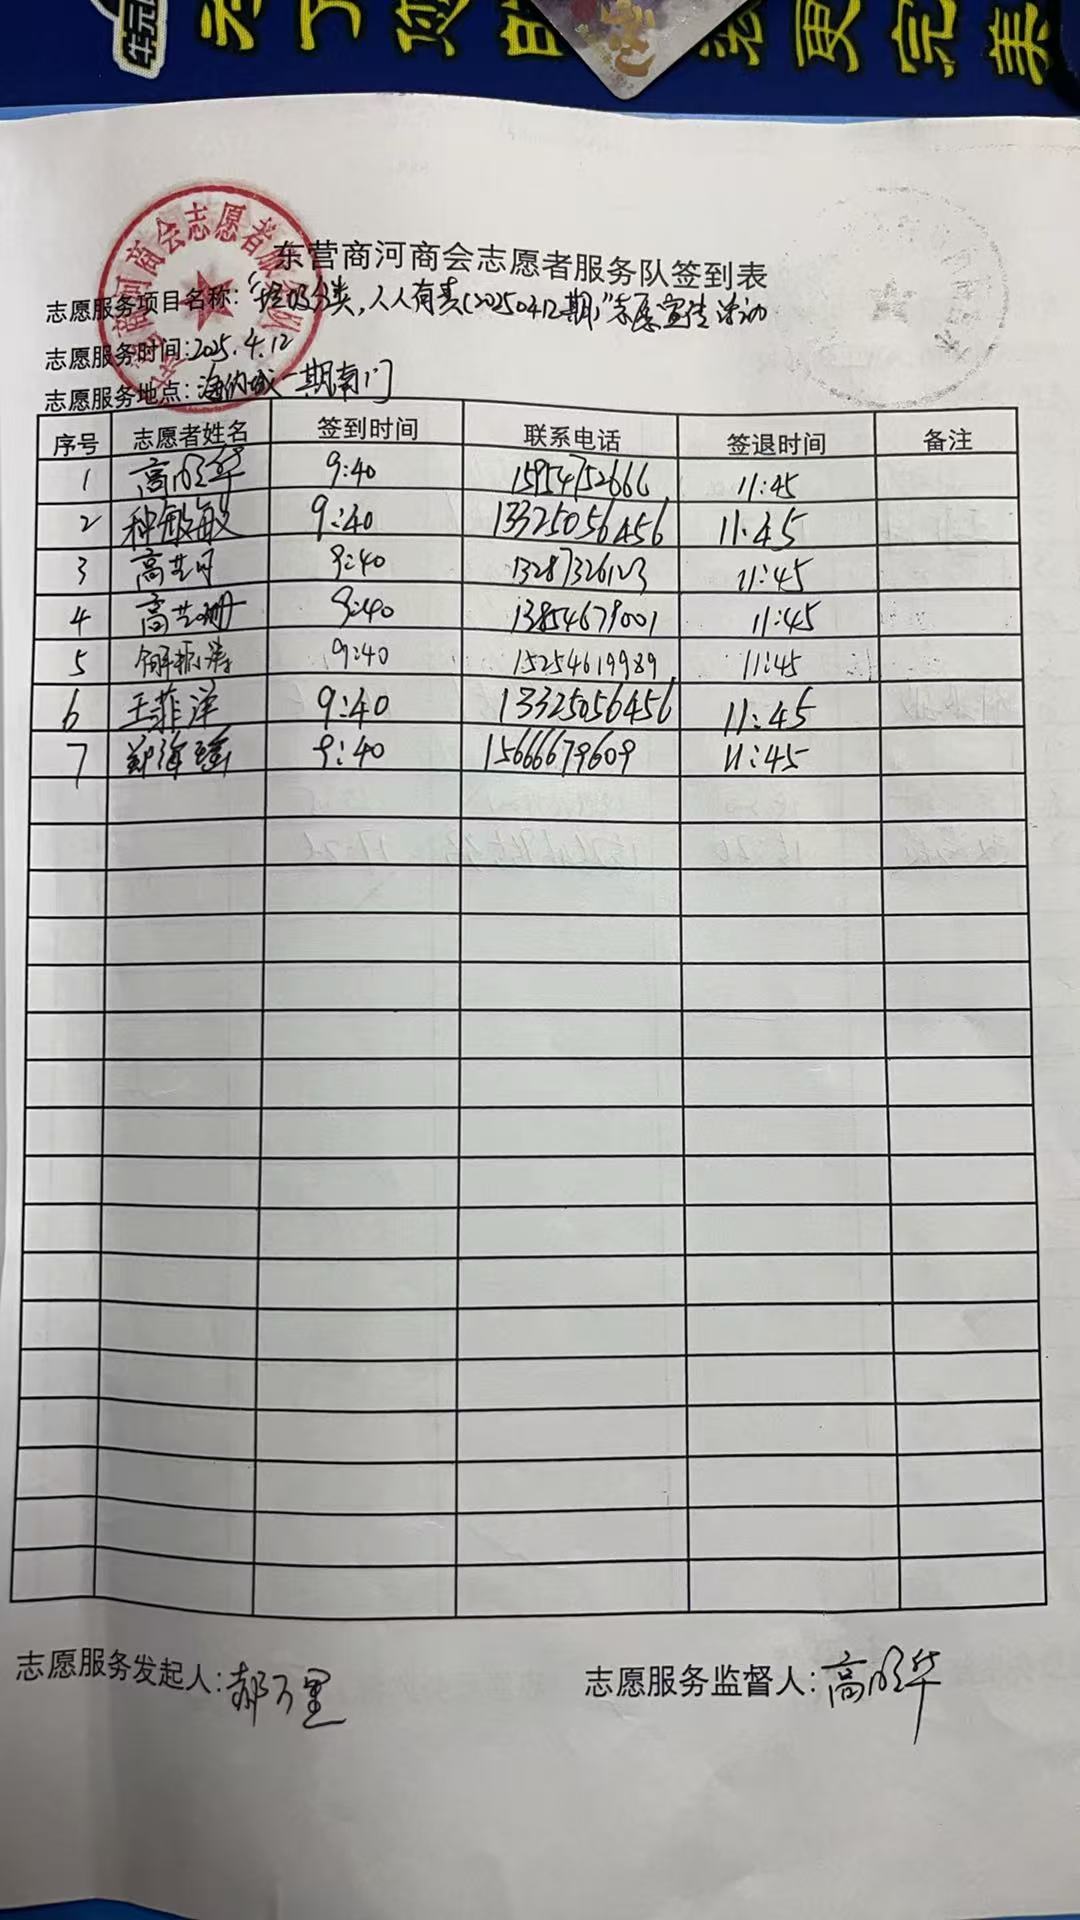 更完美
东营商河商会志愿者服务队签到表
志愿服务项目名称:“垃圾分类,人人有责(20250412期)”志愿宣传活动
志愿服务时间:2025.4.12
志愿服务地点:海纳城一期南门
序号 志愿者姓名 签到时间 联系电话 签退时间 备注
1 高明华 9:40 15954752666 11:45
2 种敏敏 9:40 13325056456 11.45
3 高芸月 9:40 13287326123 11:45
4 高艺珊 9:40 13854679001 11:45
5 解振涛 9:40 15254619989 11:45
6 王菲洋 9:40 13325056456 11:45
7 郭海瑶 9:40 15666679609 11:45
志愿服务发起人:郝万里
志愿服务监督人:高明华